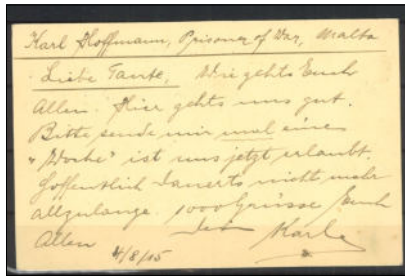 Karl Hoffmann, Prisoner of War, Malta
Liebe Tante, Wie gehts Euch
Allen. Hier gehts uns gut.
Bitte sende mir mal eine
"Woche" ist uns jetzt erlaubt.
Hoffentlich dauerts nicht mehr
allzulange. 1000 Grüsse Euch
Allen Dein Karl
4/8/15